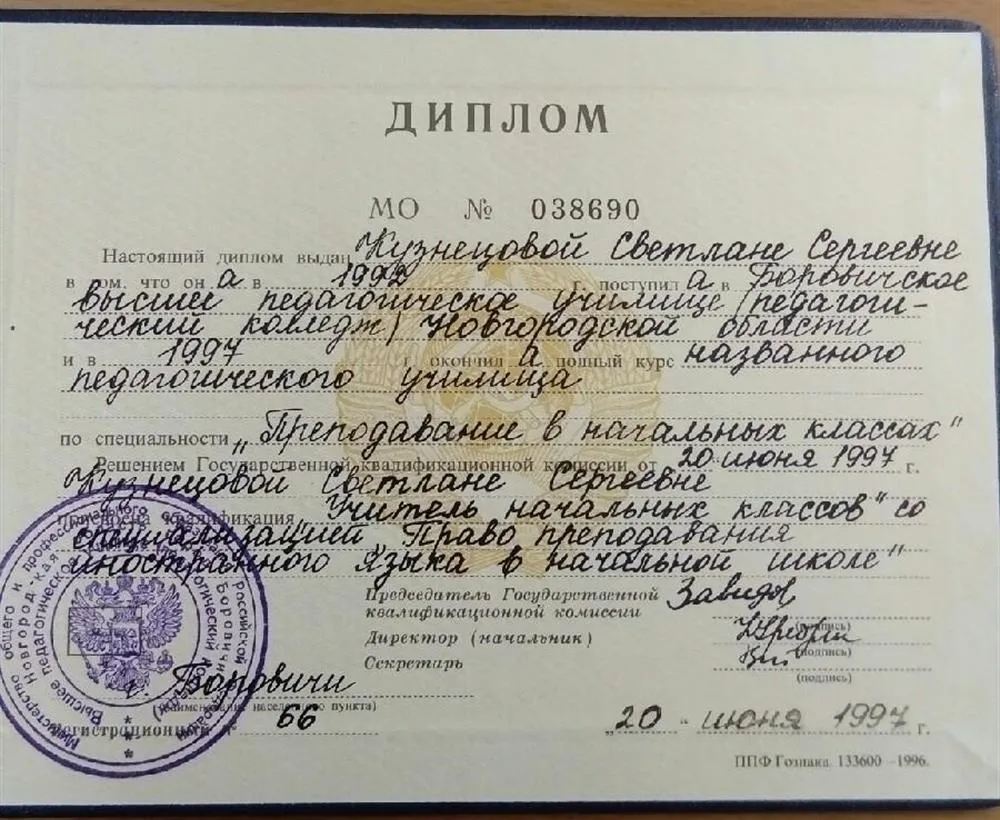 ДИПЛОМ
МО № 038690
Настоящий диплом выдан Кузнецовой Светлане Сергеевне
в том, что он а в 1992 г. поступил а в Боровичское
высшее педагогическое училище /педагоги-
ческий колледж/ Новгородской области
и в 1997 г. окончил а полный курс названного
педагогического училища
по специальности „Преподавание в начальных классах"
Решением Государственной квалификационной комиссии от 20 июня 1997 г.
Кузнецовой Светлане Сергеевне
присвоена квалификация „Учитель начальных классов" со
специализацией „Право преподавания
иностранного языка в начальной школе"
Председатель Государственной
квалификационной комиссии Завидов
(подпись)
Директор (начальник)
(подпись)
Секретарь
(подпись)
г. Боровичи
(наименование населенного пункта)
Регистрационный № 66
„20 " июня 1997 г.
ППФ Гознака. 133600 —1996.
Министерство общего и профессионального образования Российской
Новгородская
Высшее педагогическое